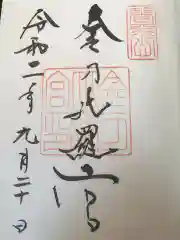 金刀比羅宮
令和二年九月二十日